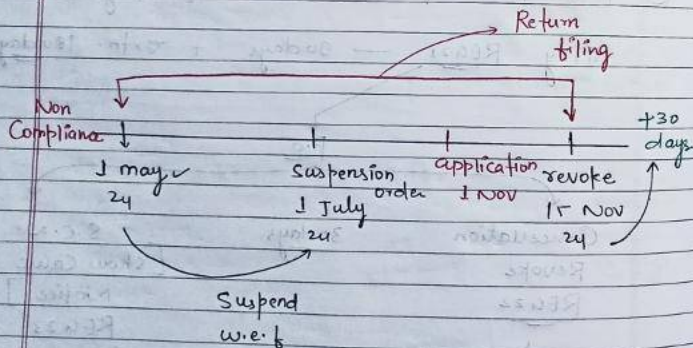 Return
filing
Non
Compliance
+30
days
1 may
24
Suspension
order
1 July
24
application
1 NOV
revoke
15 NOV
24
Suspend
w.e.f